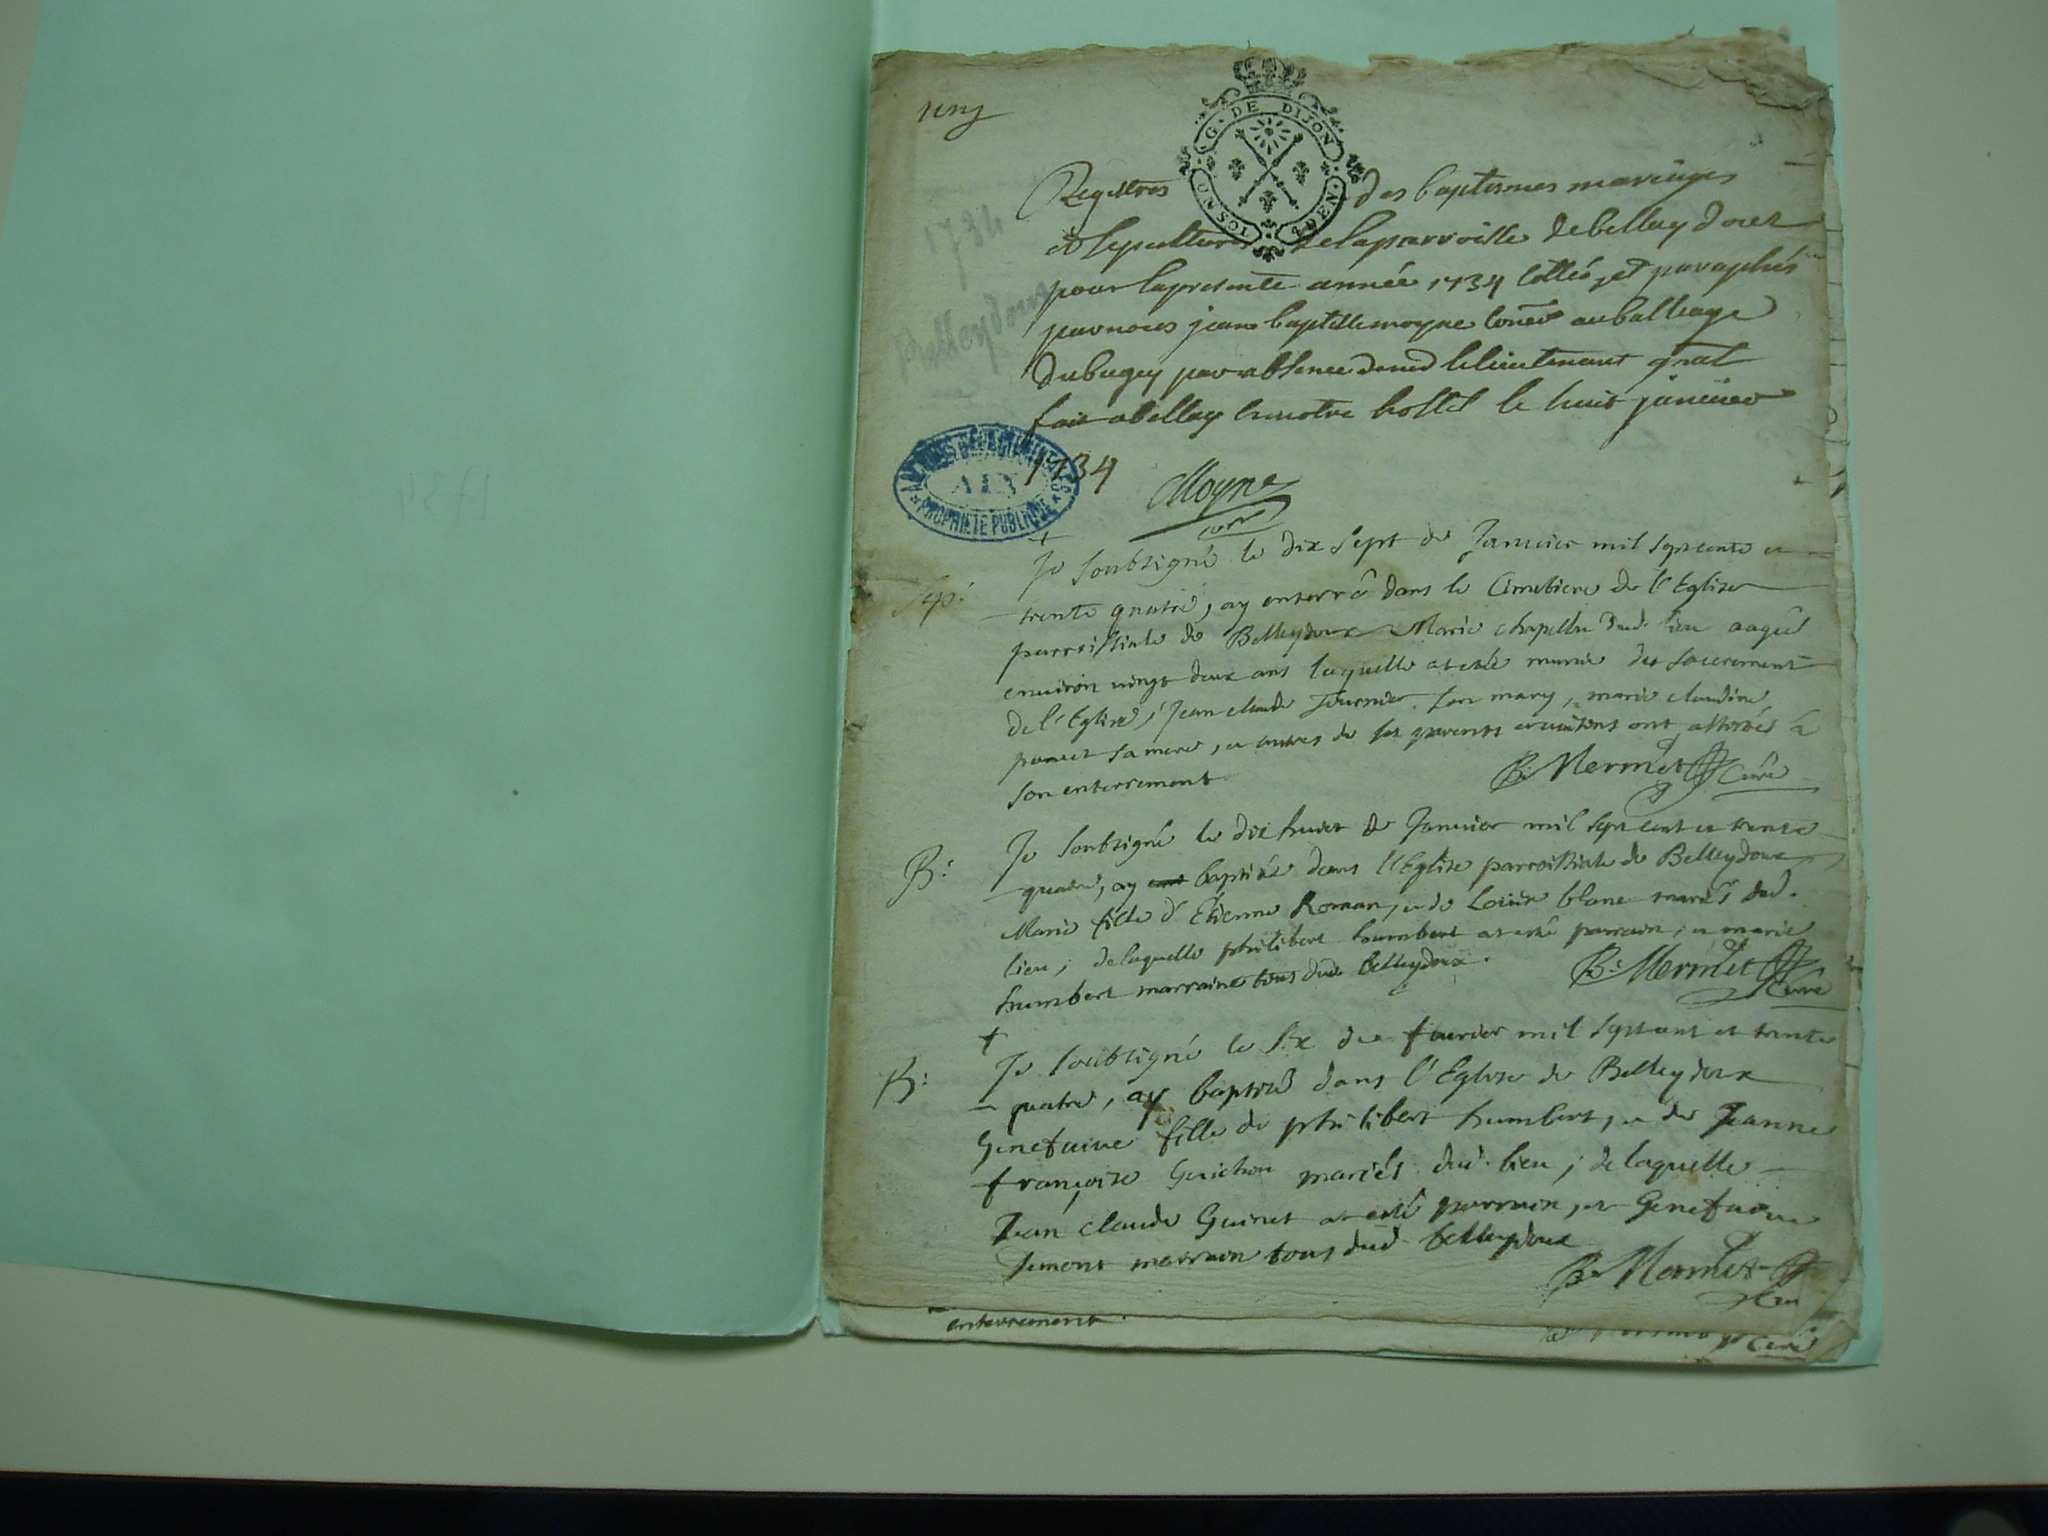 G. DE DIJON
Registres des baptesmes mariages
et sepultures de la parroisse de belleydoux
pour la presente année 1734 cottés et paraphés
par nous jean baptiste moyne au balliage
du bugey par absence de le lieutenant gnal
fait a belley en notre hostel le huit janvier
1734
Moyne
ARCHIVES DEPARTEMENTALES
AIN
PROPRIETE PUBLIQUE
Sep:
Je soubsigné le dix sept de Janvier mil sept cents et
trente quatre, ay enterré dans le Cimetiere de l'Eglise
parroissiale de Belleydoux Marie chapellu dud. lieu aagée
environ vingt deux ans laquelle at esté munie des sacrements
de l'Eglise; Jean claude Tournier son mary, marie claudine
sa mere, et autres de ses parents et voisins ont assistés à
son enterrement
B: Mermet Curé
B:
Je soubsigné le dix huict de Janvier mil sept cent et trente
quatre, ay baptisée dans l'Eglise parroissiale de Belleydoux
Marie fille d'Etienne Roman, et de Louise blanc mariés dud.
lieu; de laquelle philibert humbert at esté parrain, et marie
humbert marraine tous dud. Belleydoux.
B: Mermet Curé
B:
Je soubsigné le six de fevrier mil sept cent et trente
quatre, ay baptisé dans l'Eglise de Belleydoux
Genefuive fille de philibert humbert, et de Jeanne
françoise Guichon mariés dud. lieu; de laquelle
Jean claude Guinet at esté parrain, et Genefuive
marraine tous dud. belleydoux
B: Mermet
enterrement.
Curé
1734